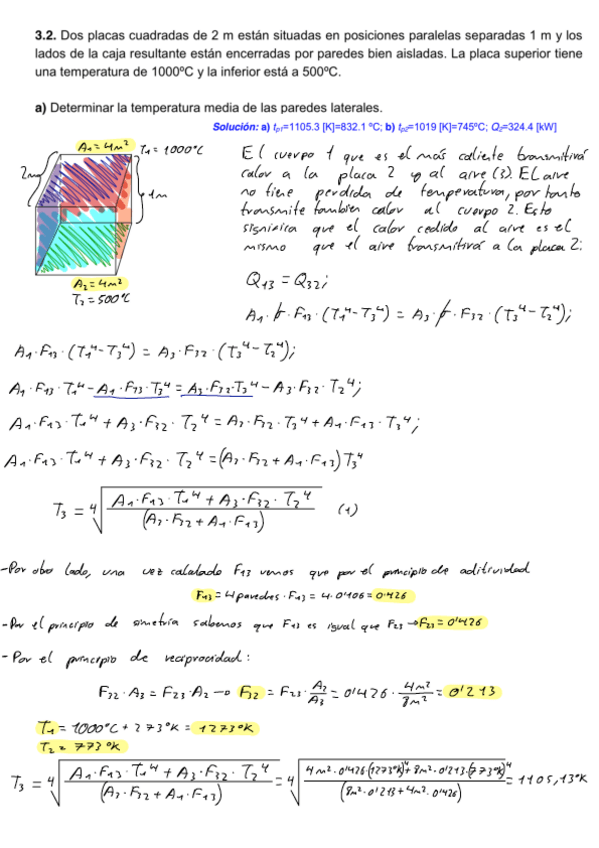 3.2. Dos placas cuadradas de 2 m están situadas en posiciones paralelas separadas 1 m y los
lados de la caja resultante están encerradas por paredes bien aisladas. La placa superior tiene
una temperatura de 1000ºC y la inferior está a 500ºC.
a) Determinar la temperatura media de las paredes laterales.
Solución: a) tp1=1105.3 [K]=832.1 ºC; b) tp2=1019 [K]=745ºC; Q2=324.4 [kW]
A1 = 4m² T1 = 1000°C
2m
1m
A2 = 4m²
T2 = 500°C
El cuerpo 1 que es el más caliente transmitirá
calor a la placa 2 y al aire (3). El aire
no tiene perdida de temperatura, por tanto
transmite tambien calor al cuerpo 2. Esto
significa que el calor cedido al aire es el
mismo que el aire transmitirá a la placa 2:
Q13 = Q32;
A1·σ·F13·(T1⁴-T3⁴) = A3·σ·F32·(T3⁴-T2⁴);
A1·F13·(T1⁴-T3⁴) = A3·F32·(T3⁴-T2⁴);
A1·F13·T1⁴-A1·F13·T3⁴ = A3·F32·T3⁴-A3·F32·T2⁴;
A1·F13·T1⁴+A3·F32·T2⁴ = A3·F32·T3⁴+A1·F13·T3⁴;
A1·F13·T1⁴+A3·F32·T2⁴ = (A3·F32+A1·F13)T3⁴
T3 = ⁴√((A1·F13·T1⁴+A3·F32·T2⁴)/(A3·F32+A1·F13)) (1)
-Por otro lado, una vez calculado F13 vemos que por el principio de aditividad
F13 = 4 paredes·F13 = 4·0'106 = 0'426
-Por el principio de simetría sabemos que F13 es igual que F23 → F23 = 0'426
-Por el principio de reciprocidad:
F32·A3 = F23·A2 → F32 = F23·A2/A3 = 0'426·4m²/8m² = 0'213
T1 = 1000°C + 273°K = 1273°K
T2 = 773°K
T3 = ⁴√((A1·F13·T1⁴+A3·F32·T2⁴)/(A3·F32+A1·F13)) = ⁴√((4m²·0'426·(1273°K)⁴+8m²·0'213·(773°K)⁴)/(8m²·0'213+4m²·0'426)) = 1105,13°K